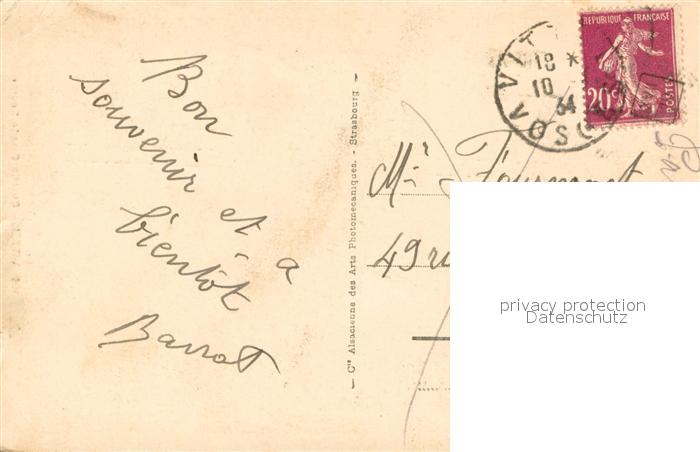 Bon
souvenir et à
bientôt
Barrat
— Cie Alsacienne des Arts Photomécaniques. - Strasbourg —
REPUBLIQUE FRANÇAISE
20c
POSTES
18 *
10
34
VOSG
Mr
49 ru
privacy protection
Datenschutz